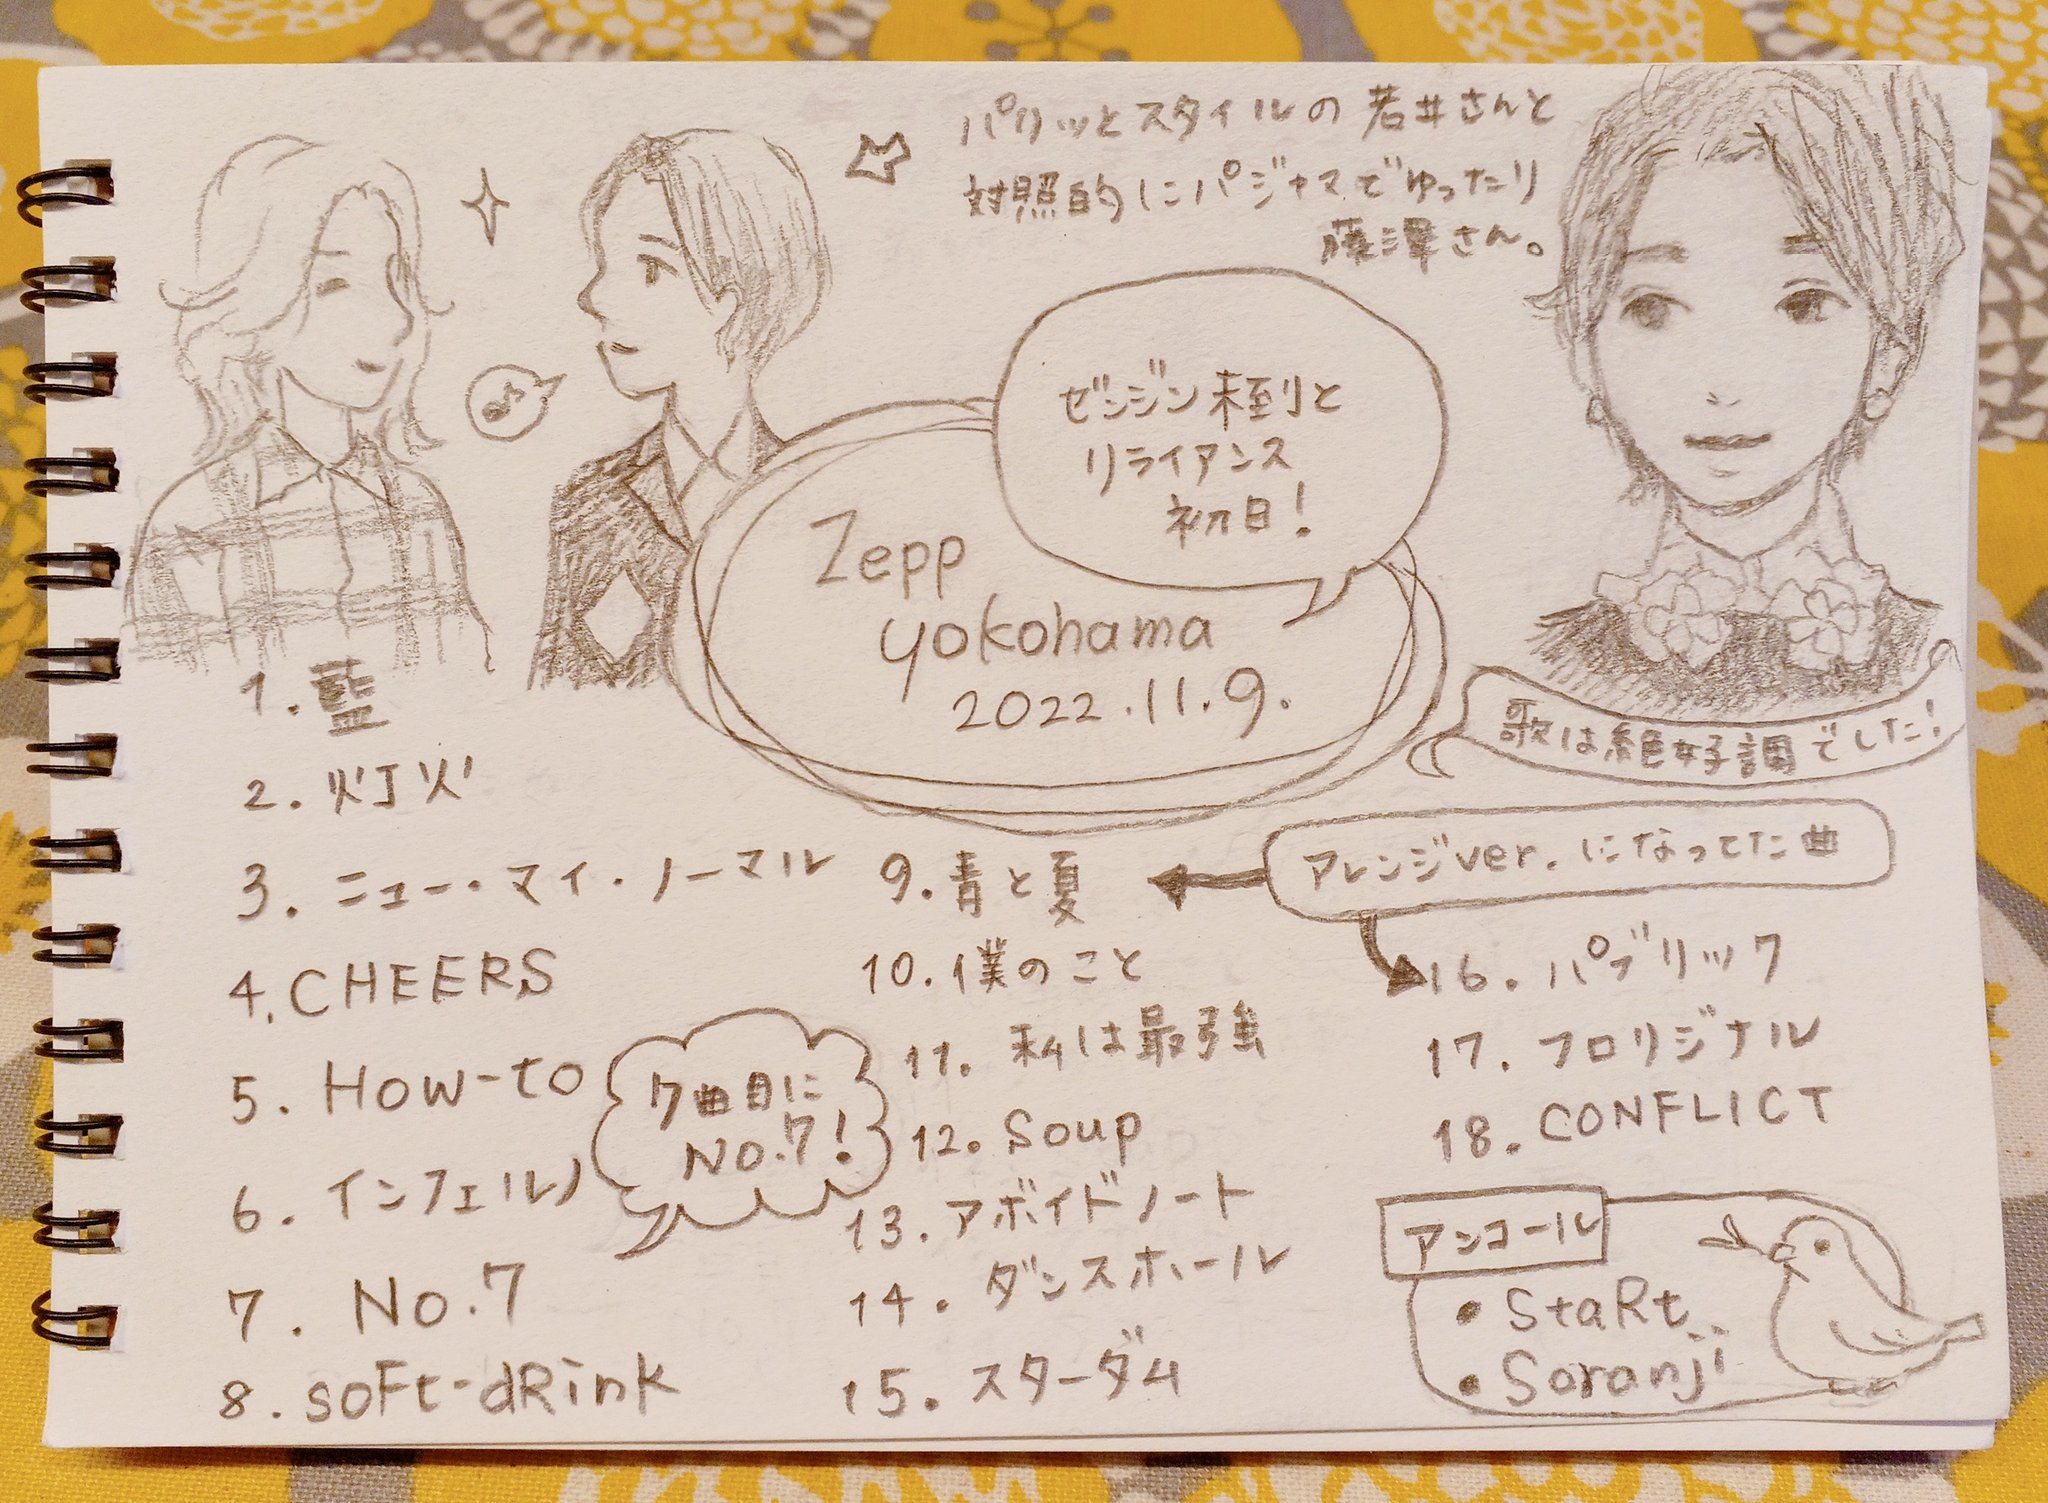 パリッとスタイルの若井さんと
対照的にパジャマでゆったり
藤澤さん。
ゼンジン未到と
リライアンス
初日!
Zepp
yokohama
2022.11.9.
歌は絶好調でした!
1. 藍
2. 灯火
3. ニュー・マイ・ノーマル
4. CHEERS
5. How-to
6. インフェルノ
7. No.7
8. soFt-dRink
7曲目に
No.7!
9. 青と夏
10. 僕のこと
11. 私は最強
12. Soup
13. アボイドノート
14. ダンスホール
15. スターダム
アレンジver.になってた曲
16. パブリック
17. フロリジナル
18. CONFLICT
アンコール
• StaRt
• Soranji